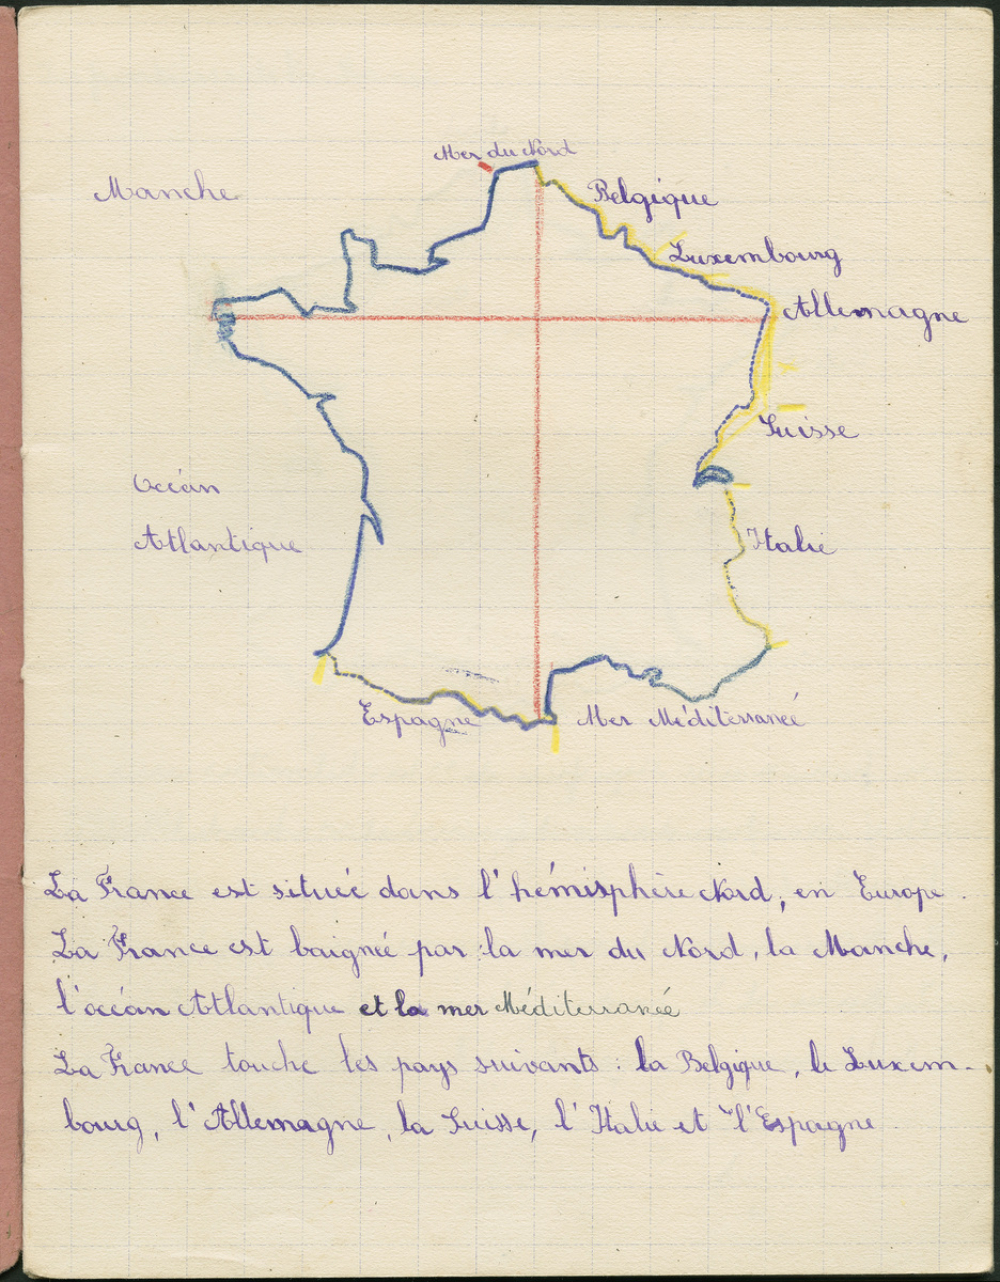 Mer du Nord
Manche
Belgique
Luxembourg
Allemagne
Suisse
Océan
Atlantique
Italie
Espagne
Mer Méditerranée
La France est située dans l'hémisphère Nord, en Europe.
La France est baignée par la mer du Nord, la Manche,
l'océan Atlantique et la mer Méditerranée
La France touche les pays suivants : la Belgique, le Luxem-
bourg, l'Allemagne, la Suisse, l'Italie et l'Espagne.